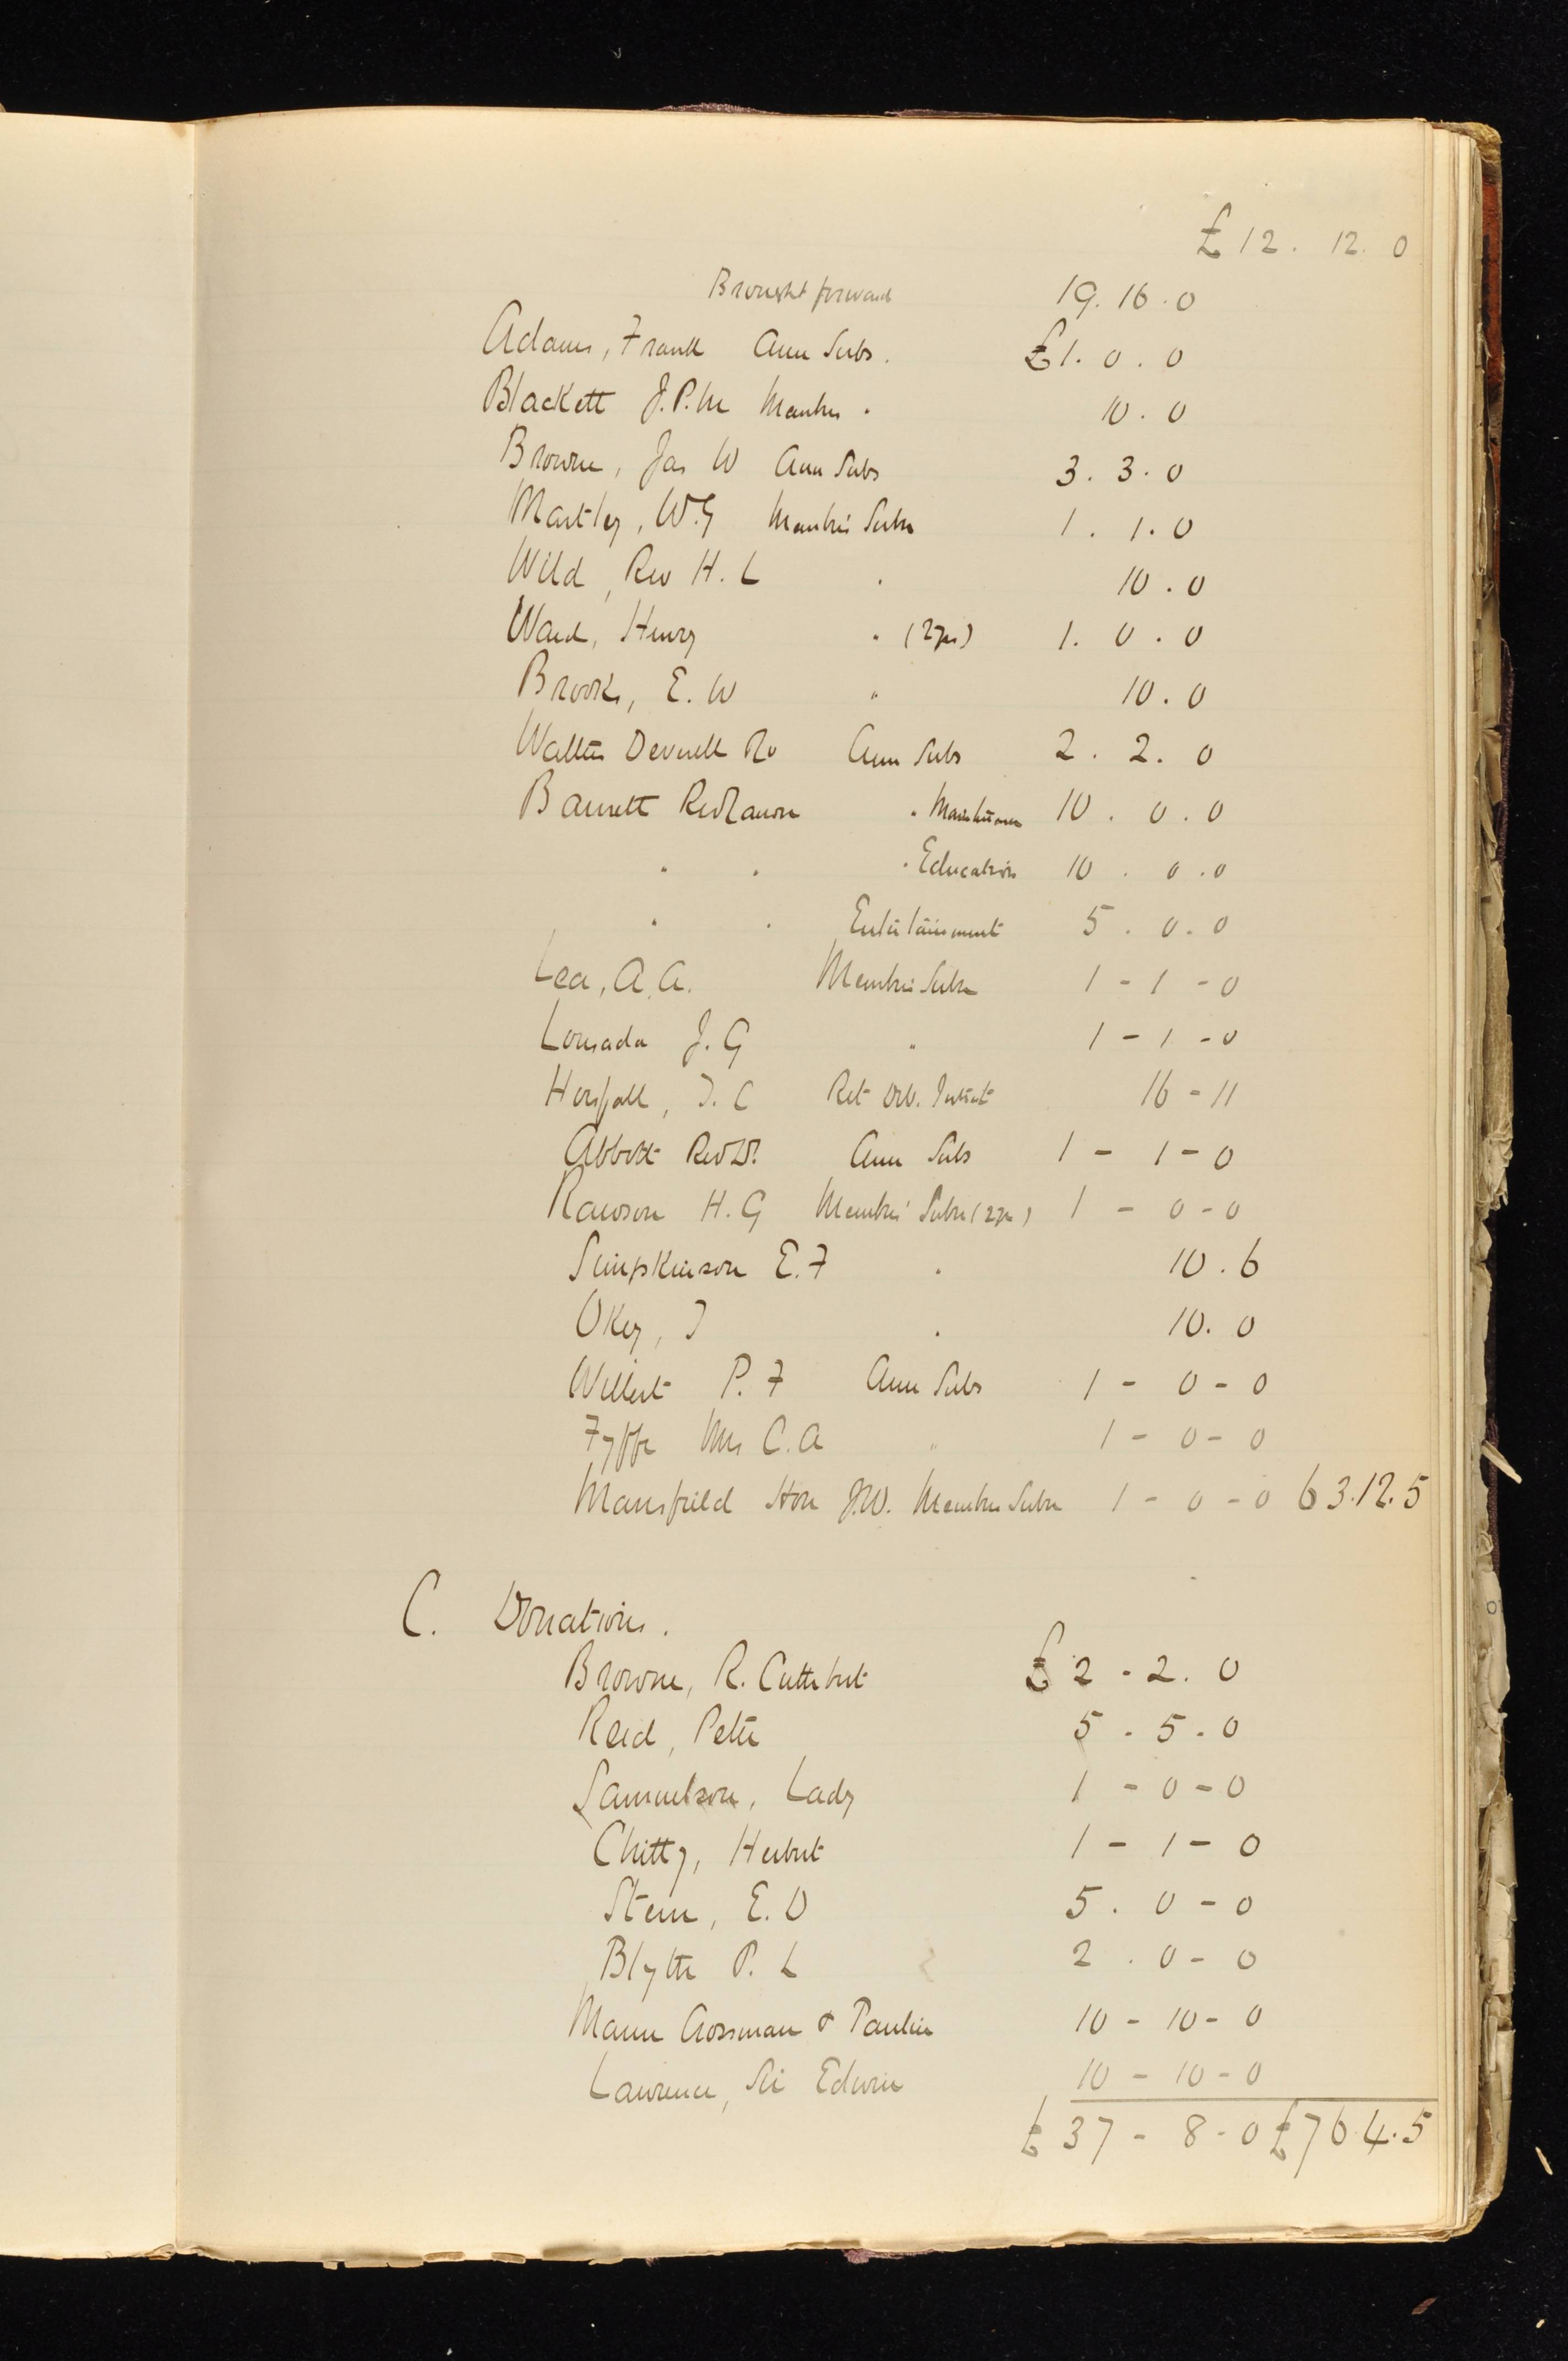 £12. 12. 0
Brought forward 19. 16. 0
Adams, Frank Ann Subs. £1. 0. 0
Blackett J.P.M Membrs " 10. 0
Browne, Jas W Ann Subs 3. 3. 0
Martley, W.G Membrs Subn 1. 1. 0
Wild, Rev H. L " 10. 0
Ward, Henry " (2yrs) 1. 0. 0
Brooks, E. W " 10. 0
Walter Deverell Rd Ann Subs 2. 2. 0
Barnett Rev Canon " Maintenance 10. 0. 0
" " " Education 10. 0. 0
" " Entertainment 5. 0. 0
Lea, A. A. Membrs Subn 1 - 1 - 0
Lousada J. G " 1 - 1 - 0
Horsfall, T. C Ret Deb. Interest 16 - 11
Abbott Rev Dr. Ann Subs 1 - 1 - 0
Rawson H. G Membrs' Subn (2yrs) 1 - 0 - 0
Simpkinson E. F " 10. 6
Okey, T " 10. 0
Willert P. F Ann Subs 1 - 0 - 0
Fyffe Mrs C. A " 1 - 0 - 0
Mansfield Hon J.W. Membrs Subn 1 - 0 - 0 63. 12. 5
C. Donations.
Browne, R. Cuthbert £2 - 2. 0
Reid, Peter 5. 5. 0
Samuelson, Lady 1 - 0 - 0
Chitty, Herbert 1 - 1 - 0
Stern, E. D 5. 0 - 0
Blyth P. L 2. 0 - 0
Mann Crossman & Paulin 10 - 10 - 0
Lawrence, Sir Edwin 10 - 10 - 0
£ 37 - 8 - 0 £76. 4. 5